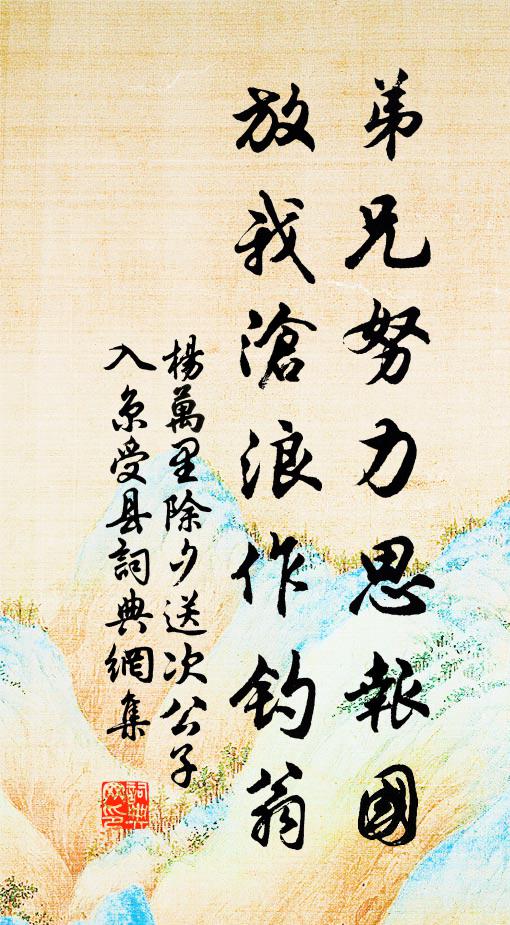 弟兄努力思報國
放我滄浪作釣翁
楊萬里除夕送次公子
入京受县詞典網集